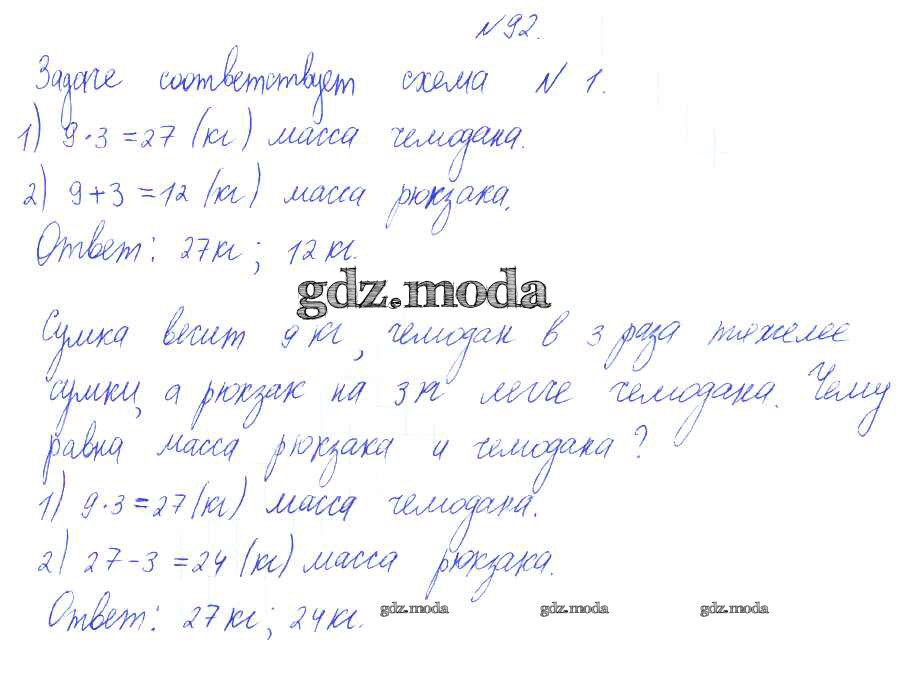 № 92.
Задаче соответствует схема № 1.
1) 9·3=27 (кг) масса чемодана.
2) 9+3=12 (кг) масса рюкзака.
Ответ: 27 кг; 12 кг.
gdz.moda
Сумка весит 9 кг, чемодан в 3 раза тяжелее
сумки, а рюкзак на 3 кг легче чемодана. Чему
равна масса рюкзака и чемодана?
1) 9·3=27 (кг) масса чемодана.
2) 27-3=24 (кг) масса рюкзака.
Ответ: 27 кг; 24 кг.
gdz.moda gdz.moda gdz.moda